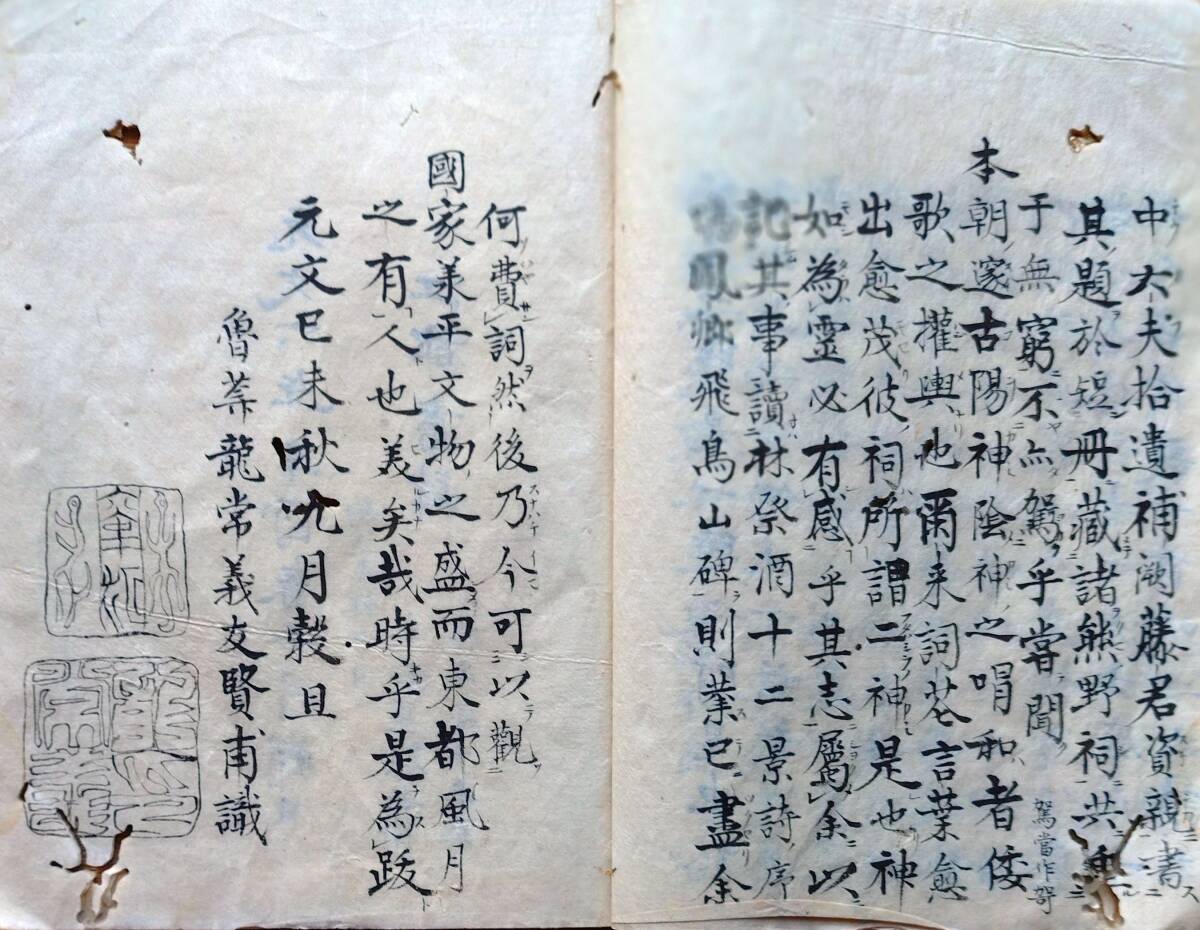 中大夫拾遺補闕藤君資親書
其題於短冊藏諸熊野祠共垂
于無窮不亦駕乎嘗聞
駕當作竒
本
朝邃古陽神陰神之唱和者倭
歌之權輿也爾来詞花言葉愈
出愈茂彼祠所謂二神是也神
如為靈必有感乎其志屬余以
記其事讀林祭酒十二景詩序
鳳卿飛鳥山碑則業已盡余
何費詞然後乃今可以觀
國
家義平文物之盛而東都風月
之有人也美矣哉時乎是為跋
元文己未秋九月穀旦
魯莽龍常義友賢甫識